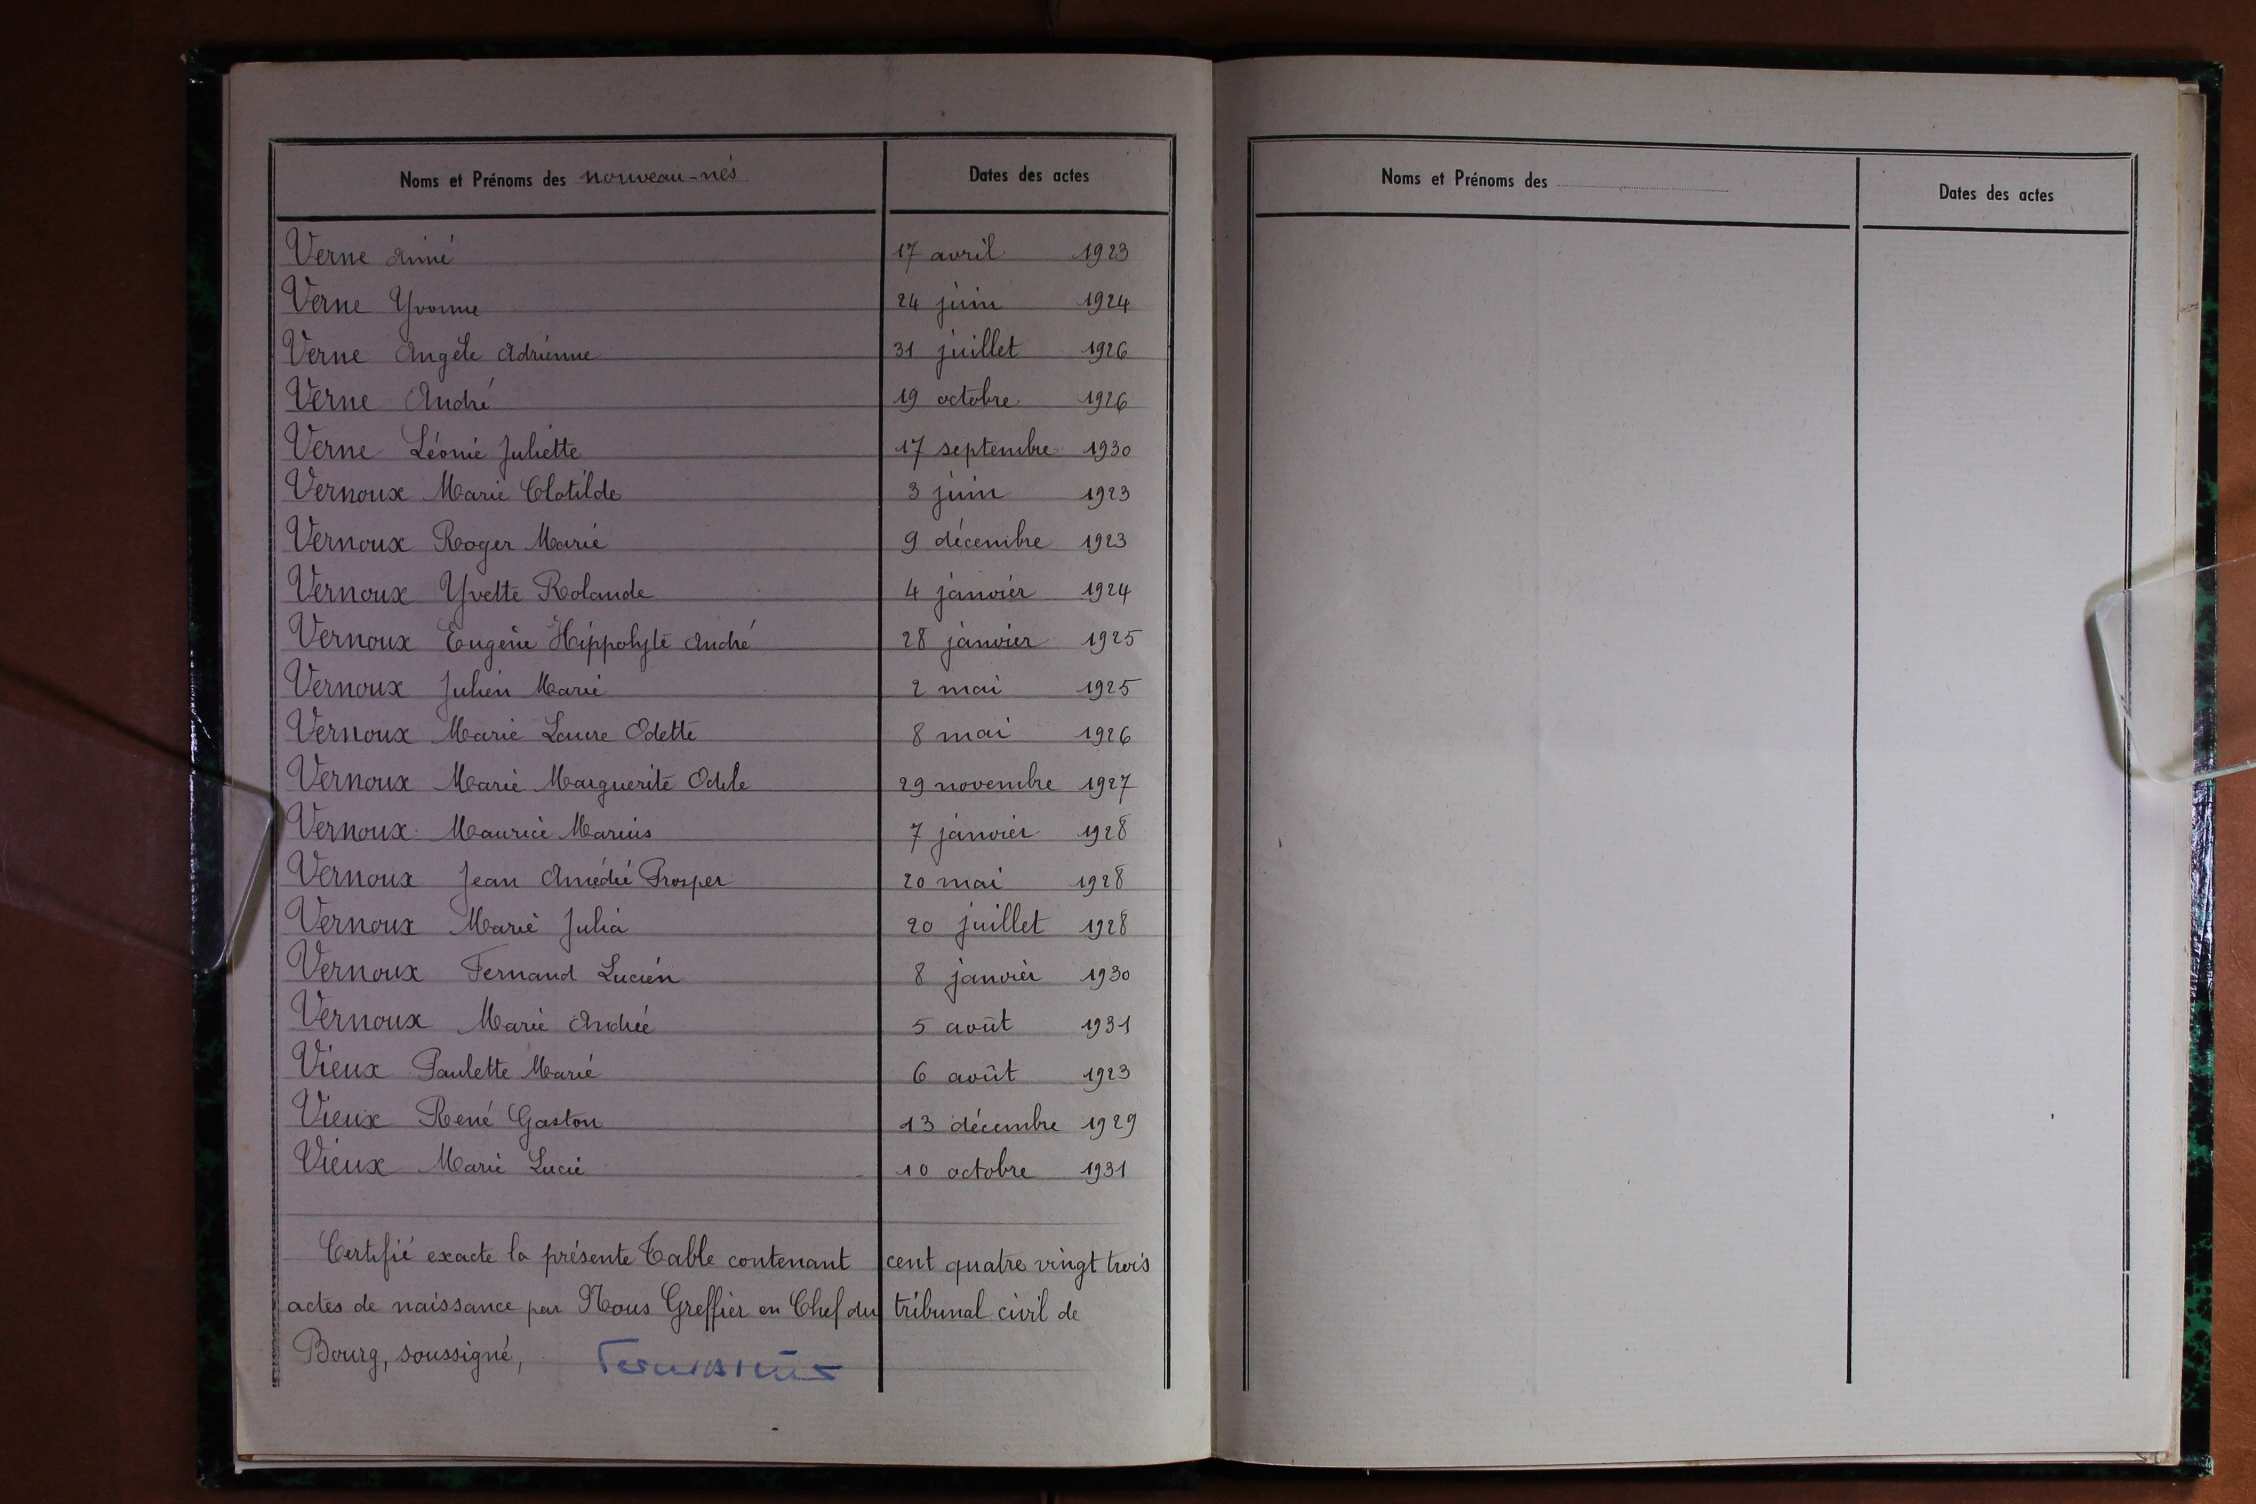 Noms et Prénoms des nouveau-nés Dates des actes
Verne Aimé 17 avril 1923
Verne Yvonne 24 juin 1924
Verne Angèle Adrienne 31 juillet 1926
Verne André 19 octobre 1926
Verne Léonie Juliette 17 septembre 1930
Vernoux Marie Clotilde 3 juin 1923
Vernoux Roger Marie 9 décembre 1923
Vernoux Yvette Rolande 4 janvier 1924
Vernoux Eugène Hippolyte André 28 janvier 1925
Vernoux Julien Marie 2 mai 1925
Vernoux Marie Laure Odette 8 mai 1926
Vernoux Marie Marguerite Odile 29 novembre 1927
Vernoux Maurice Marius 7 janvier 1928
Vernoux Jean Amédée Prosper 20 mai 1928
Vernoux Marie Julia 20 juillet 1928
Vernoux Fernand Lucien 8 janvier 1930
Vernoux Marie Andrée 5 août 1931
Vieux Paulette Marie 6 août 1923
Vieux René Gaston 13 décembre 1929
Vieux Marie Lucie 10 octobre 1931
Certifié exacte la présente Table contenant cent quatre vingt trois
actes de naissance par Nous Greffier en Chef du tribunal civil de
Bourg, soussigné,
Noms et Prénoms des Dates des actes